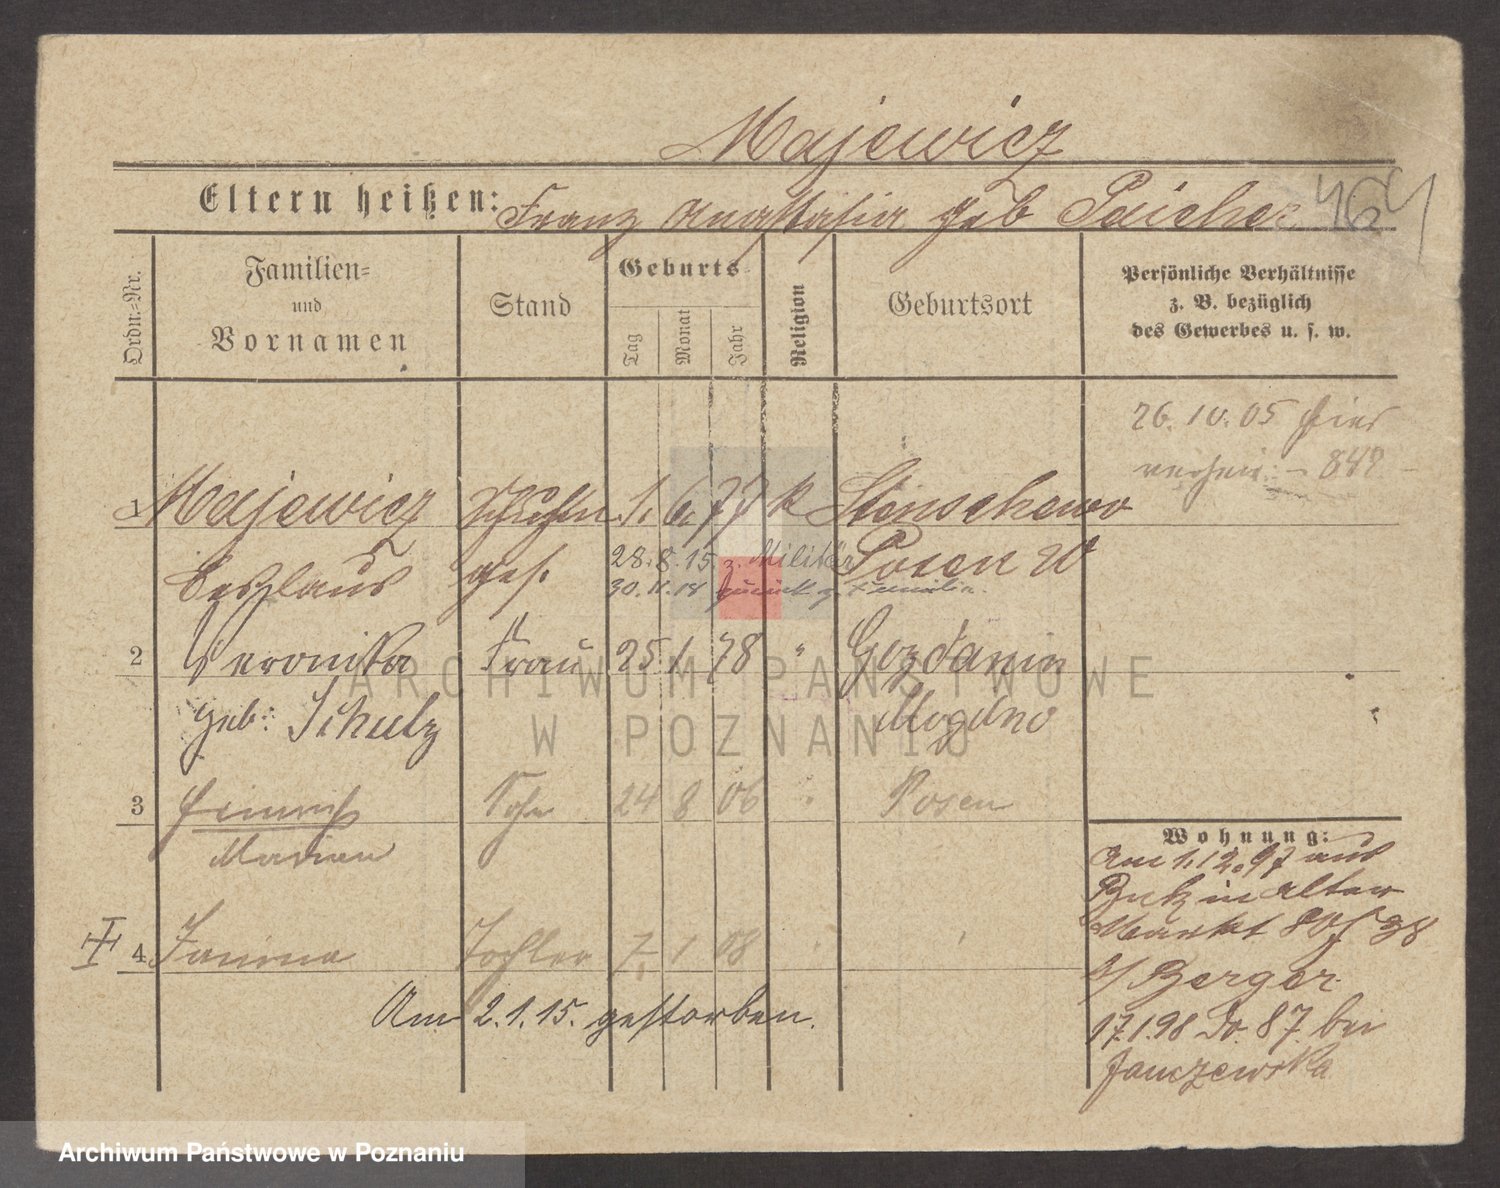 Majewicz
Eltern heißen: Franz Anastasia geb Paicher
464
Ordn.-Nr.
Familien-
und
Vornamen
Stand
Geburts
Tag
Monat
Jahr
Religion
Geburtsort
Persönliche Verhältnisse
z. B. bezüglich
des Gewerbes u. s. w.
26.10.05 hier
verheir. - 849 -
1 Majewicz Schuhm 1. 6. 77 k Stenschewo
Ceslaus ges. 28.8.15. z. Militär Posen W
30.11.18 zurück z. Familie.
2 Veronika Frau 25 1 78 " Gozdanin
geb: Schulz Mogilno
3 Heinrich Sohn 24 8 06 " Posen
Marian
4 Janina Tochter 7. 1 08 "
Am 2.1.15. gestorben.
Wohnung:
Am 1.12.97 aus
Buk in Alter
Markt 80/
b/ Berger
17.1.98 Do. 87. bei
Janczewska
ARCHIWUM PAŃSTWOWE
W POZNANIU
Archiwum Państwowe w Poznaniu